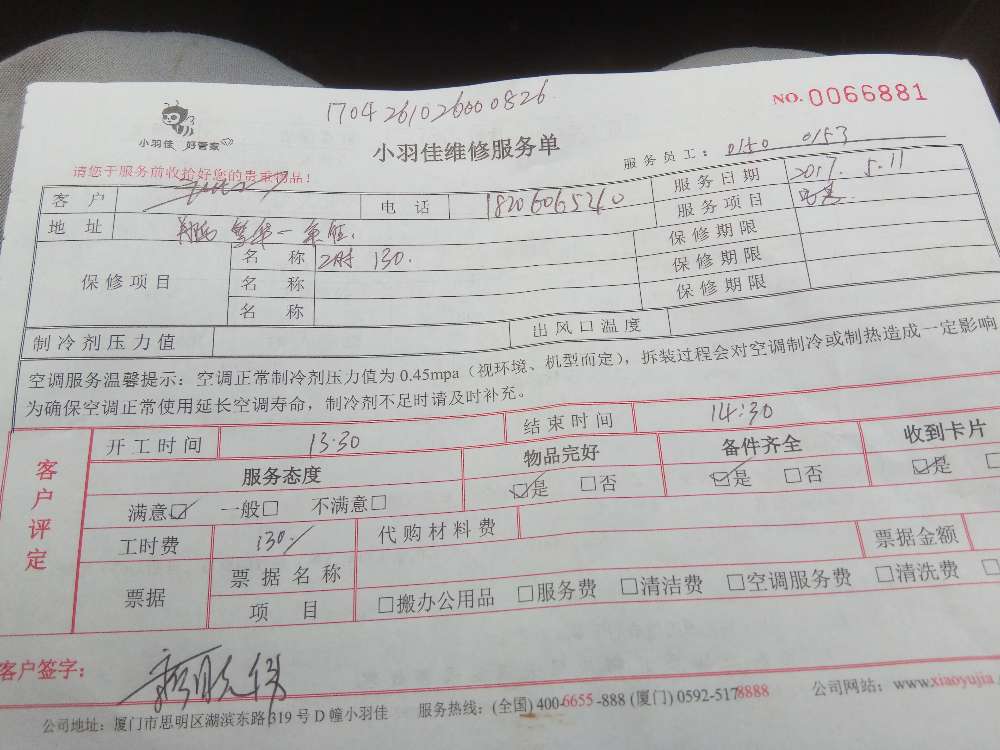 170426102600 0826
NO. 0066881
小羽佳 好管家
小羽佳维修服务单
服务员工: 0150 0153
请您于服务前收拾好您的贵重物品!
客户
电话 18206065210
服务日期 2017.5.11
服务项目
地址
保修项目
名称 2时 130.
名称
名称
保修期限
保修期限
保修期限
制冷剂压力值
出风口温度
空调服务温馨提示:空调正常制冷剂压力值为 0.45mpa(视环境、机型而定),拆装过程会对空调制冷或制热造成一定影响
为确保空调正常使用延长空调寿命,制冷剂不足时请及时补充。
客户评定
开工时间 13:30
结束时间 14:30
服务态度
物品完好
备件齐全
收到卡片
满意☑ 一般□ 不满意□
☑是 □否
☑是 □否
☑是
工时费 130/
代购材料费
票据
票据名称
票据金额
项目
□搬办公用品 □服务费 □清洁费 □空调服务费 □清洗费
客户签字:
公司地址:厦门市思明区湖滨东路 319 号 D 幢小羽佳 服务热线:(全国) 400-6655-888 (厦门) 0592-5178888 公司网站:www.xiaoyujia.